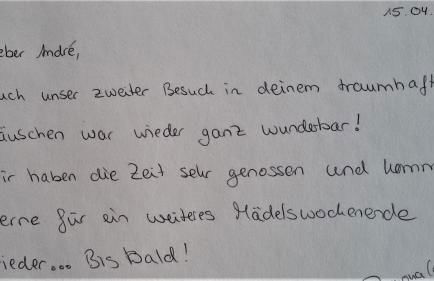 15.04.
eber André,
uch unser zweiter Besuch in deinem traumhaft
äuschen war wieder ganz wunderbar!
ir haben die Zeit sehr genossen und komm
erne für ein weiteres Mädelswochenende
ieder... Bis bald!